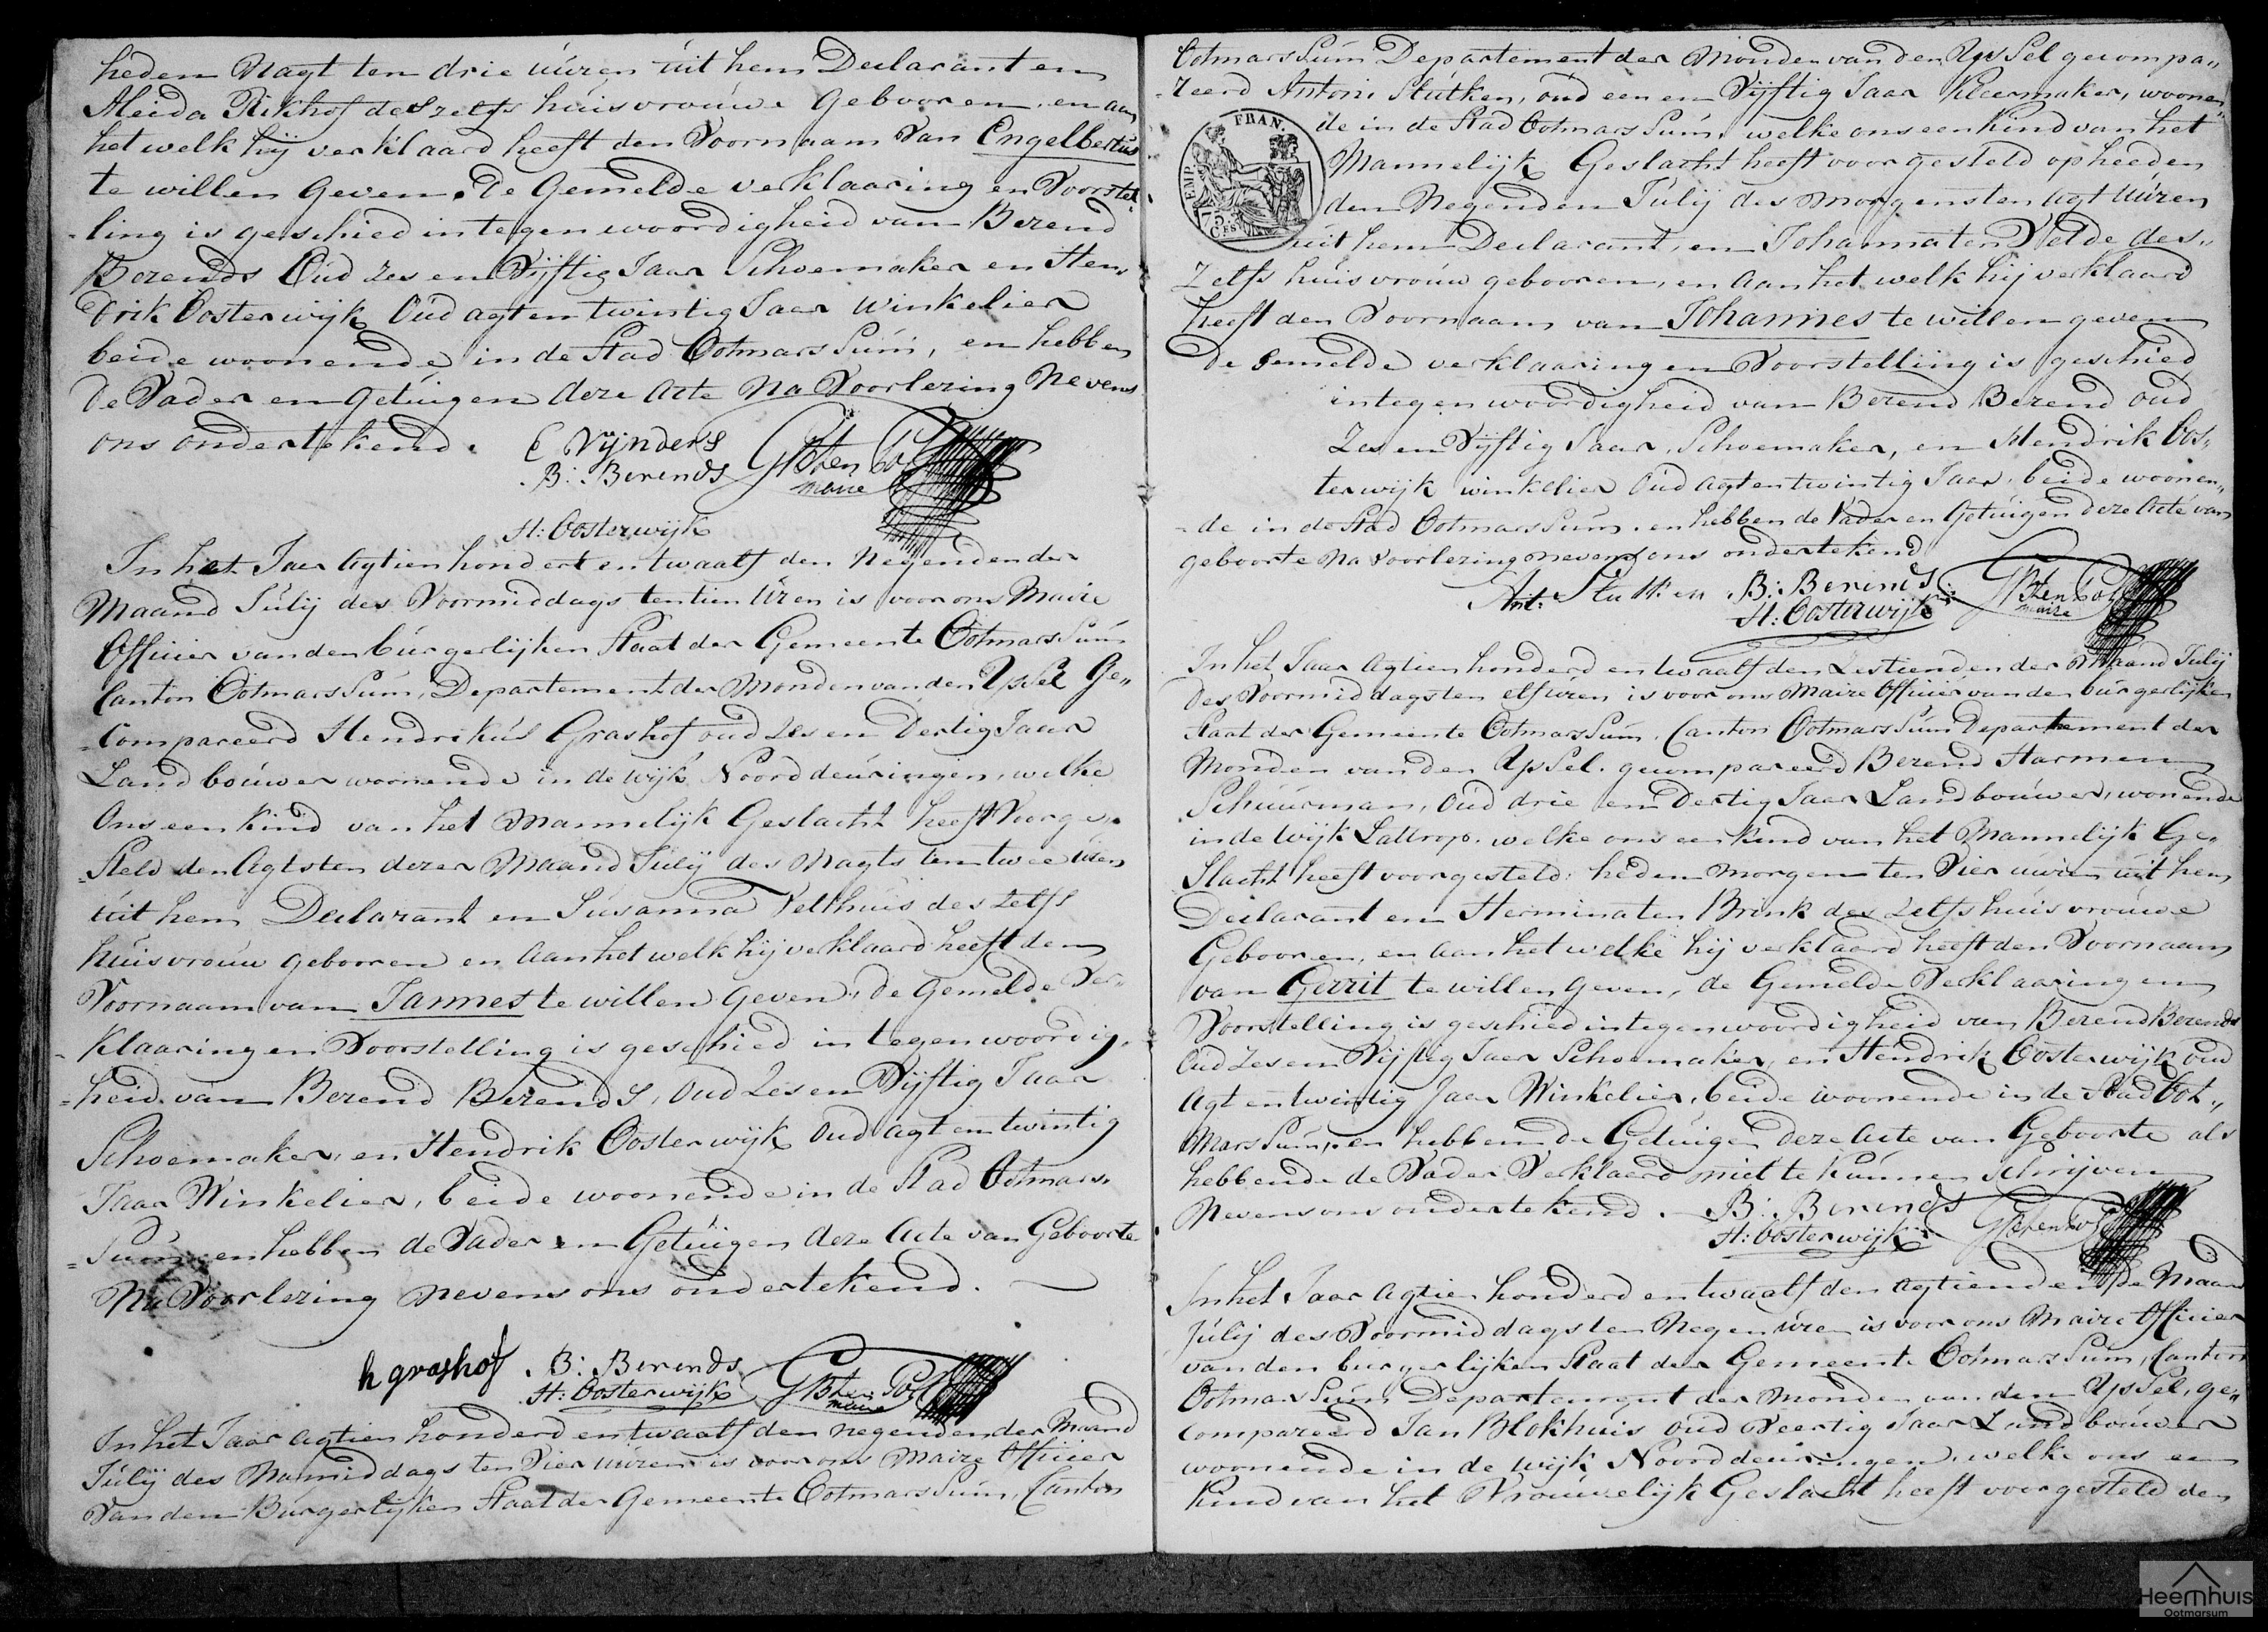 heden Nagt ten drie uúren úit hem Declarant en
Aleida Rikhof deszelfs húisvroúwe Gebooren, en aan
het welk hij verklaard heeft den Voornaam van Engelbertús
te willen Geven. De Gemelde verklaaring en Voorstel
-ling is geschied in tegenwoordigheid van Berend
Berends Oúd zes en Vijftig Jaar Schoemaker en Hen„
drik Oosterwijk Oúd agt en twintig Jaar Winkelier
beide woonende in de Stad Ootmarssúm, en hebben
de Vader en Getúigen deze Acte Na Voorlezing Nevens
ons ondertekend.
E Vijnders
B: Berends GB ten Pol
maire
H: Oosterwijk
In het Jaar Agtien hondert en twaalf den Negenden der
Maand Júlij des Voormiddags ten tien Uren is voor ons Maire
Officier van den búrgerlijken Staat der Gemeente Ootmarssúm
Canton Ootmarssúm, Departement der Monden van den Yssel Ge„
-Compareerd Hendrikús Grashof oud zes en Dertig Jaar
Landboúwer woonende in de Wijk Noorddeúringen, welke
Ons een Kind van het Mannelijk Geslacht heeft Voorge„
-steld den Agtsten dezer Maand Júlij des Nagts ten twee úren
úit hem Declarant en Súsanna Velthúis deszelfs
húisvroúw gebooren en aan het welk hij verklaard heeft den
Voornaam van Jannes te willen Geven, de Gemelde Ver„
-klaaring en Voorstelling is geschied in tegenwoordig„
=heid van Berend Berends, Oud zes en Vijftig Jaar
Schoemaker, en Hendrik Oosterwijk Oud agt en twintig
Jaar Winkelier, beide woonende in de Stad Ootmars„
=súm, en hebben de Vader en Getúigen deze Acte van Geboorte
Na Voorlezing Nevens ons ondertekend.
h grashof B: Berends GB ten Pol
H: Oosterwijk maire
In het Jaar agtien honderd en twaalf den negenden der Maand
Júlij des Namiddags ten Vier uúren is voor ons Maire Officier
Van den Búrgerlijken Staat der Gemeente Ootmarssúm, Canton
Ootmarssúm Departement der Monden van den Yssel gecompa„
-reerd Antoni Stútken, oúd een en Vijftig Jaar Kleermaker, woonen„
de in de Stad Ootmarssúm, welke ons een Kind van het
Mannelijk Geslacht heeft voorgesteld op heeden
den Negenden Júlij des morgens ten agt Uúren
EMP. FRAN.
75 Cs
úit hem Declarant, en Johanna ten Velde des„
zelfs húisvroúw gebooren, en aan het welk hij verklaard
heeft den Voornaam van Johannes te willen geven
De Gemelde verklaaring en Voorstelling is geschied
in tegenwoordigheid van Berend Berend Oud
Zes en Vijftig Jaar, Schoemaker, en Hendrik Oos„
terwijk winkelier Oud agt en twintig Jaar, beide woonen„
=de in de Stad Ootmarssúm, en hebben de Vader en Getúigen deze Acte van
geboorte na voorlezing nevens ons ondertekend
Ant: Stutken B: Berends GB ten Pol
H: Oosterwijk maire
In het Jaar Agtien honderd en twaalf den Zestienden der Maand Julij
Des Voormiddags ten elf uren is voor ons Maire Officier van den búrgerlijken
Staat der Gemeente Ootmarssúm, Canton Ootmarssúm Departement der
Monden van den Yssel. gecompareerd Berend Harmen
Schúúrman, Oúd drie en Dertig Jaar Landboúwer, wonende
in de Wijk Lattrop. welke ons een Kind van het Mannelijk Ge„
slacht heeft voorgesteld: heden morgen ten Vier uúren úit hem
Declarant en Hermina ten Brink des zelfs húisvroúwe
Gebooren, en aan het welke hij verklaard heeft den Voornaam
van Gerrit te willen geven, de Gemelde Verklaaring en
Voorstelling is geschied in tegenwoordigheid van Berend Berends
Oud Zes en Vijftig Jaar Schoemaker, en Hendrik Oosterwijk oud
Agt en twintig Jaar Winkelier, beide woonende in de Stad Oot„
marssúm, en hebben de Getúigen deze Acte van Geboorte als
hebbende de Vader Verklaard niet te Kúnnen schrijven
Nevens ons ondertekend. B: Berends
H: Oosterwijk GB ten Pol
In het Jaar Agtien honderd en twaalf den agtienden de Maand
Júlij des Voormiddags ten Negen úren is voor ons Maire Officier
van den burgerlijken Staat der Gemeente Ootmarssúm, Canton
Ootmarssúm Departement der Monden van den Yssel, ge„
compareerd Jan Blokhúis oud Veertig Jaar Landboúwer
woonende in de wijk Noorddeúringen, welke ons een
Kind van het Vroúwelijk Geslacht heeft voorgesteld den
Heemhuis
Ootmarsum